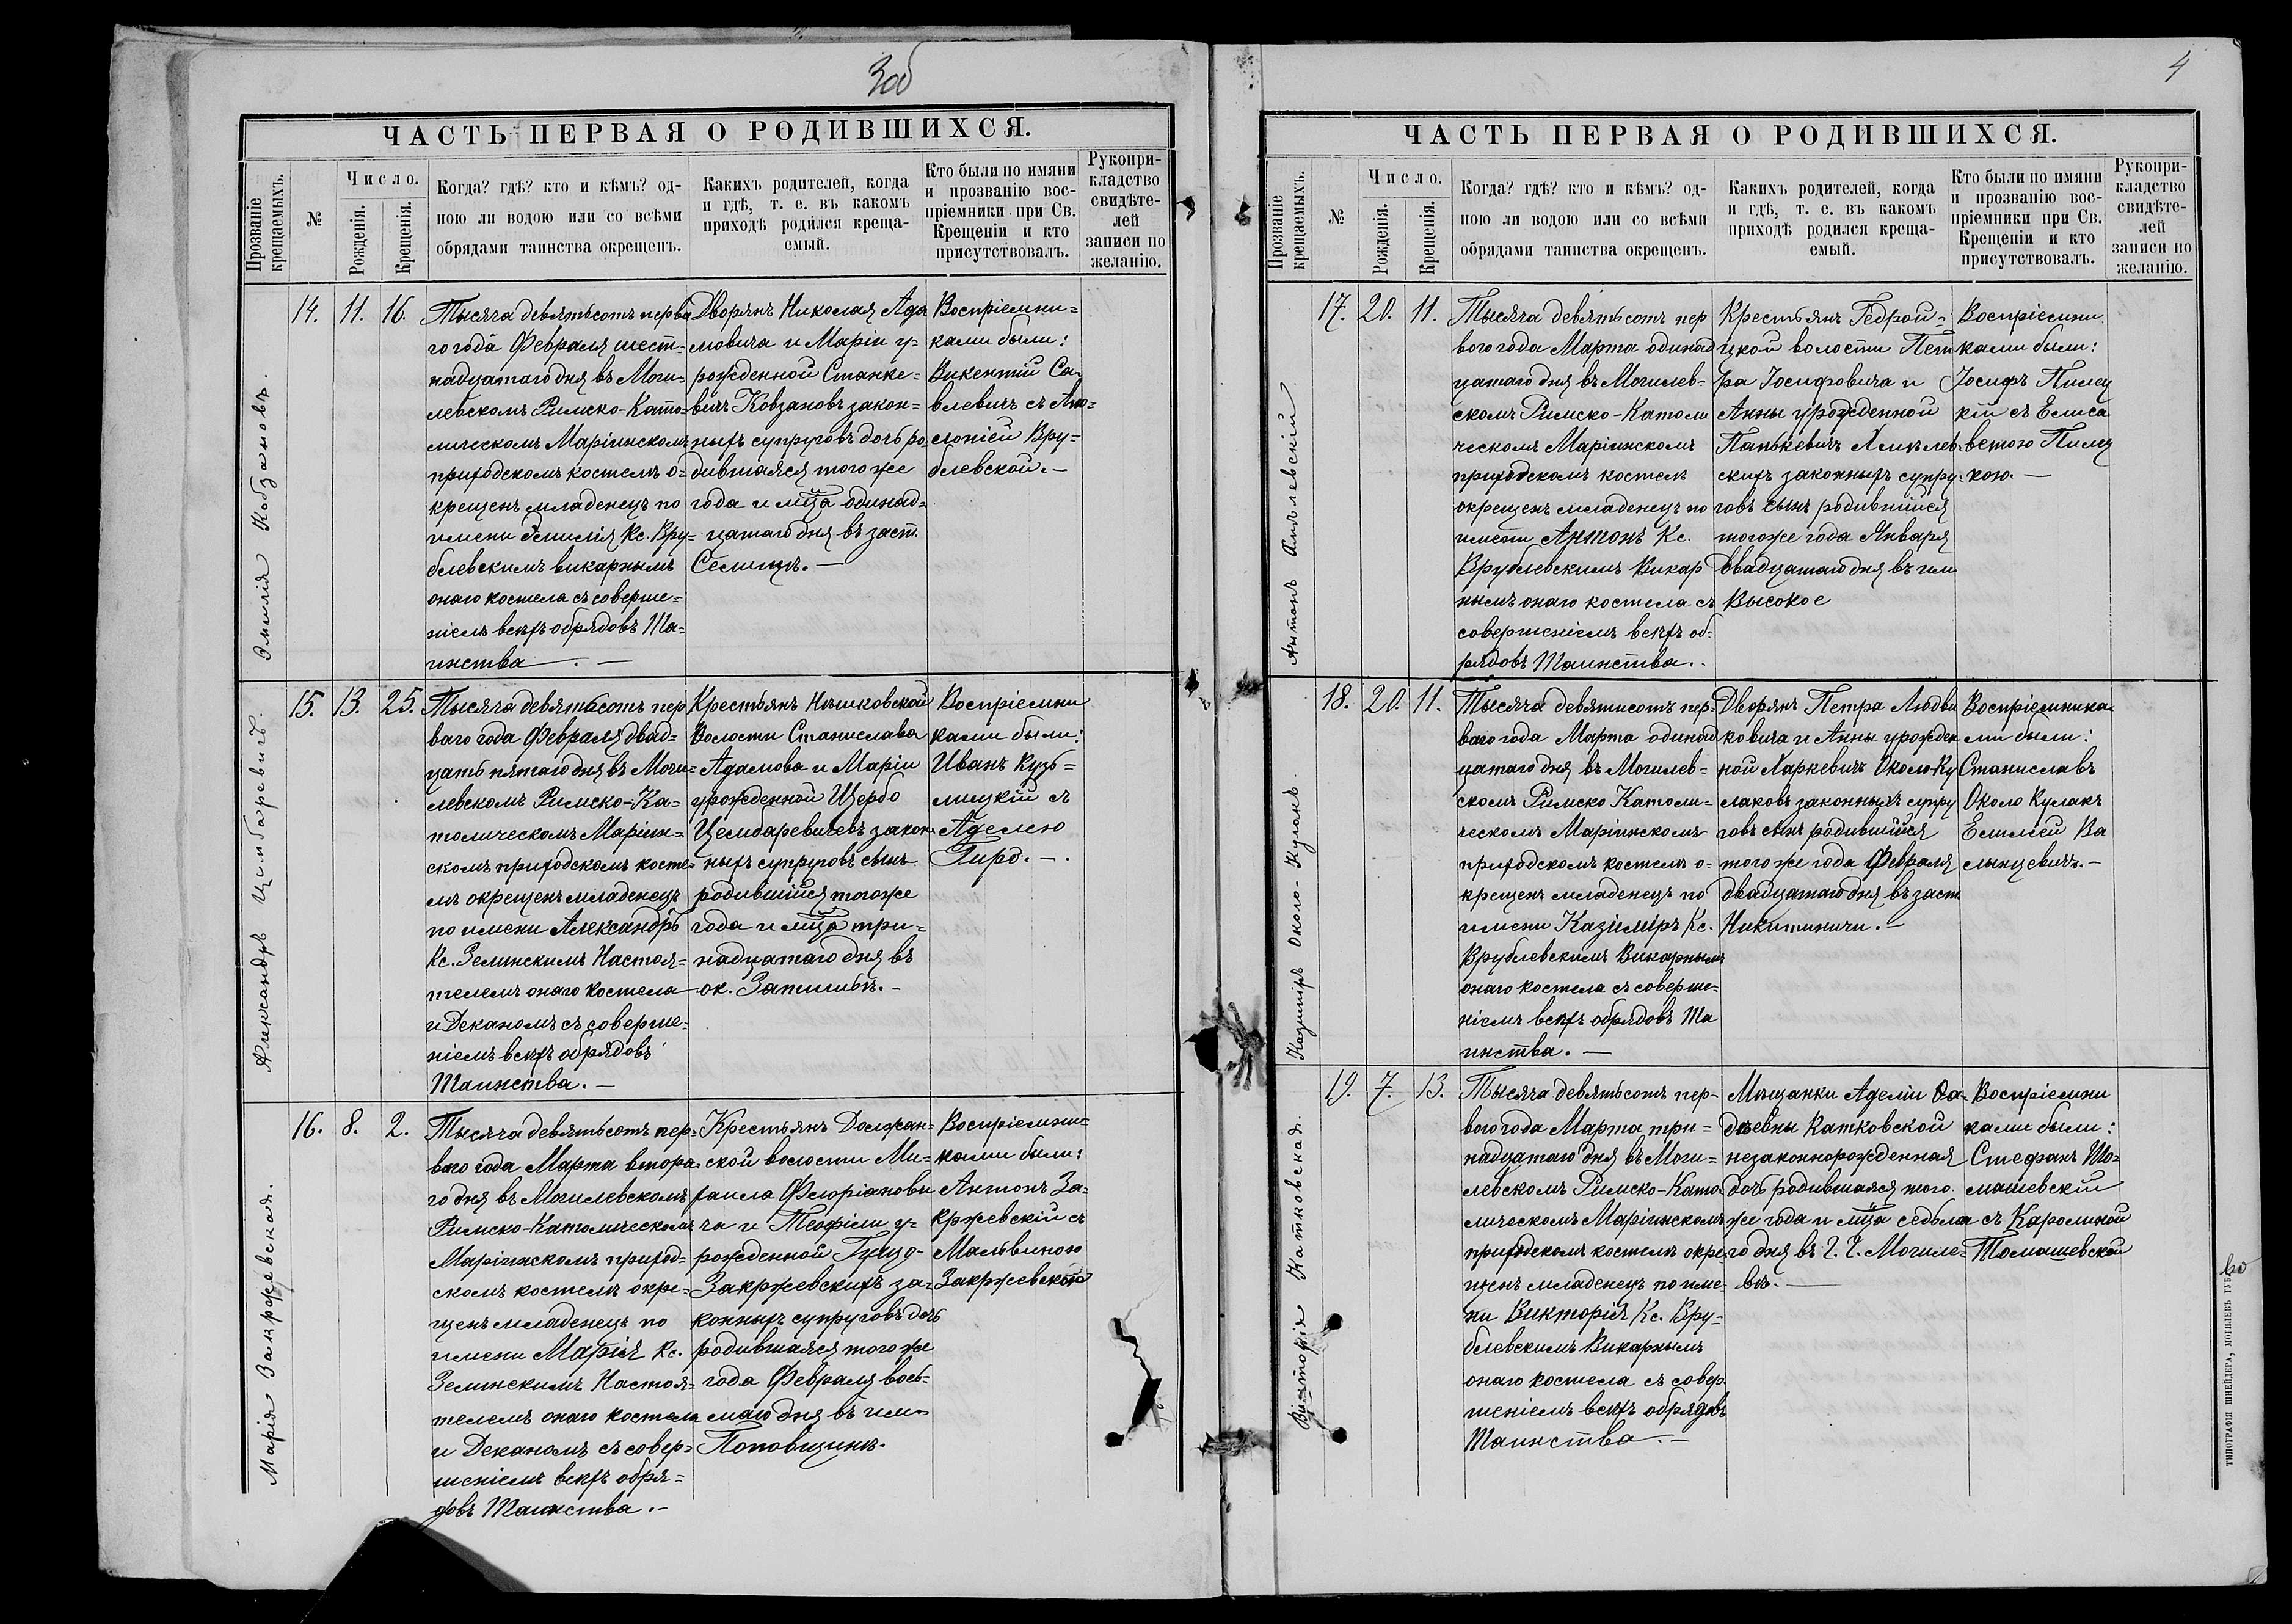 3об
ЧАСТЬ ПЕРВАЯ О РОДИВШИХСЯ.
Прозваніе крещаемыхъ.
№
Число.
Рожденія.
Крещенія.
Когда? гдѣ? кто и кѣмъ? од-
ною ли водою или со всѣми
обрядами таинства окрещенъ.
Какихъ родителей, когда
и гдѣ, т. е. въ какомъ
приходѣ родился креща-
емый.
Кто были по имяни
и прозванію вос-
пріемники при Св.
Крещеніи и кто
присутствовалъ.
Рукопри-
кладство
свидѣте-
лей
записи по
желанію.
Эмилія Кобзановъ.
14. 11. 16.
Тысяча девятьсотъ перва
го года Февраля шест-
надцатаго дня въ Моги-
левскомъ Римско-Като-
лическомъ Маріинскомъ
приходскомъ костелѣ о-
крещенъ младенецъ по
имени Эмилія Кс. Вру-
блевскимъ викарнымъ
онаго костела съ соверше-
ніемъ всѣхъ обрядовъ Та-
инства. —
Дворянъ Николая Ада
мовича и Маріи у-
рожденной Станке-
вичъ Ковзановъ закон-
ныхъ супруговъ дочь ро
дившаяся того же
года и мца одинад-
цатаго дня въ заст.
Селищѣ. —
Воспріемни-
ками были:
Викентій Са-
влевичъ съ Апо-
лоніей Вру-
блевской. —
Александръ Цембаревичъ.
15. 13. 25.
Тысяча девятьсотъ пер
ваго года Февраля двад-
цать пятаго дня въ Моги-
левскомъ Римско-Ка-
толическомъ Маріин-
скомъ приходскомъ косте-
лѣ окрещенъ младенецъ
по имени Александръ
Кс. Зелинскимъ Настоя-
телемъ онаго костела
и Деканомъ съ соверше-
ніемъ всѣхъ обрядовъ
Таинства. —
Крестьянъ Няшковской
Волости Станислава
Адамова и Маріи
урожденной Щербо
Цембаревичевъ закон
ныхъ супруговъ сынъ
родившійся тогоже
года и мца три-
надцатаго дня въ
ок. Затишьѣ. —
Воспріемни
ками были:
Иванъ Кузь-
мицкій съ
Аделею
Гиро. —
Марія Закржевская.
16. 8. 2.
Тысяча девятьсотъ пер-
ваго года Марта втора
го дня въ Могилевскомъ
Римско-Католическомъ
Маріинскомъ приход-
скомъ костелѣ окре-
щенъ младенецъ по
имени Марія Кс.
Зелинскимъ Настоя-
телемъ онаго костела
и Деканомъ съ совер-
шеніемъ всѣхъ обря-
довъ Таинства. —
Крестьянъ Должан-
ской волости Ми-
хаила Флоріанови
ча и Теофіли у-
рожденной
Закржевскихъ за-
конныхъ супруговъ дочь
родившаяся того же
года Февраля вось-
маго дня въ им.
Поповщинѣ.
Воспріемни-
ками были:
Антонъ За-
кржевскій съ
Мальвиною
Закржевскою
4
ЧАСТЬ ПЕРВАЯ О РОДИВШИХСЯ.
Прозваніе крещаемыхъ.
№
Число.
Рожденія.
Крещенія.
Когда? гдѣ? кто и кѣмъ? од-
ною ли водою или со всѣми
обрядами таинства окрещенъ.
Какихъ родителей, когда
и гдѣ, т. е. въ какомъ
приходѣ родился креща-
емый.
Кто были по имяни
и прозванію вос-
пріемники при Св.
Крещеніи и кто
присутствовалъ.
Рукопри-
кладство
свидѣте-
лей
записи по
желанію.
Антонъ Хмѣлевскій
17. 20. 11.
Тысяча девятьсотъ пер
вого года Марта одинад
цатаго дня въ Могилев-
скомъ Римско-Католи
ческомъ Маріинскомъ
приходскомъ костелѣ
окрещенъ младенецъ по
имени Антонъ Кс.
Врублевскимъ Викар
нымъ онаго костела съ
совершеніемъ всѣхъ об-
рядовъ Таинства. .
Крестьянъ Гедрой-
цкой волости Пет
ра Іосифовича и
Анны урожденной
Панькевичъ Хмѣлев
скихъ законныхъ супру-
говъ сынъ родившійся
тогоже года Января
двадцатаго дня въ им
Высокое
Воспріемни
ками были:
Іосифъ Пилец
кій съ Елиса
ветою Пилец
кою. —
Казиміръ Около-Кулакъ.
18. 20. 11.
Тысяча девятисотъ пер-
ваго года Марта одинад
цатаго дня въ Могилев-
скомъ Римско Католи-
ческомъ Маріинскомъ
приходскомъ костелѣ о-
крещенъ младенецъ по
имени Казіміръ Кс.
Врублевскимъ Викарнымъ
онаго костела съ соверше-
ніемъ всѣхъ обрядовъ Та
инства. —
Дворянъ Петра Людви
ковича и Анны урожден
ной Харкевичъ Около-Ку
лаковъ законныхъ супру
говъ сынъ родившійся
того же года Февраля
двадцатаго дня въ заст
Никитиничи. —
Воспріемника-
ми были:
Станиславъ
Около Кулакъ
Емиліей Ва
лынцевичъ. —
Викторія Катковская.
19. 7. 13.
Тысяча девятьсотъ пер-
вого года Марта три-
надцатаго дня въ Моги-
левскомъ Римско-Като
лическомъ Маріинскомъ
приходскомъ костелѣ окре
щенъ младенецъ по име
ни Викторія Кс. Вру-
блевскимъ Викарнымъ
онаго костела съ совер
шеніемъ всѣхъ обрядовъ
Таинства. —
Мѣщанки Аделіи Ѳа-
дѣевны Катковской
незаконнорожденная
дочь родившаяся того
же года и мца седьма
го дня въ Г. Г. Могиле-
вѣ. —
Воспріемни
ками были:
Стефанъ То-
машевскій
съ Каролиной
Томашевской
ТИПОГРАФІЯ ШНЕЙДЕРА, МОГИЛЕВЪ ГУБ.